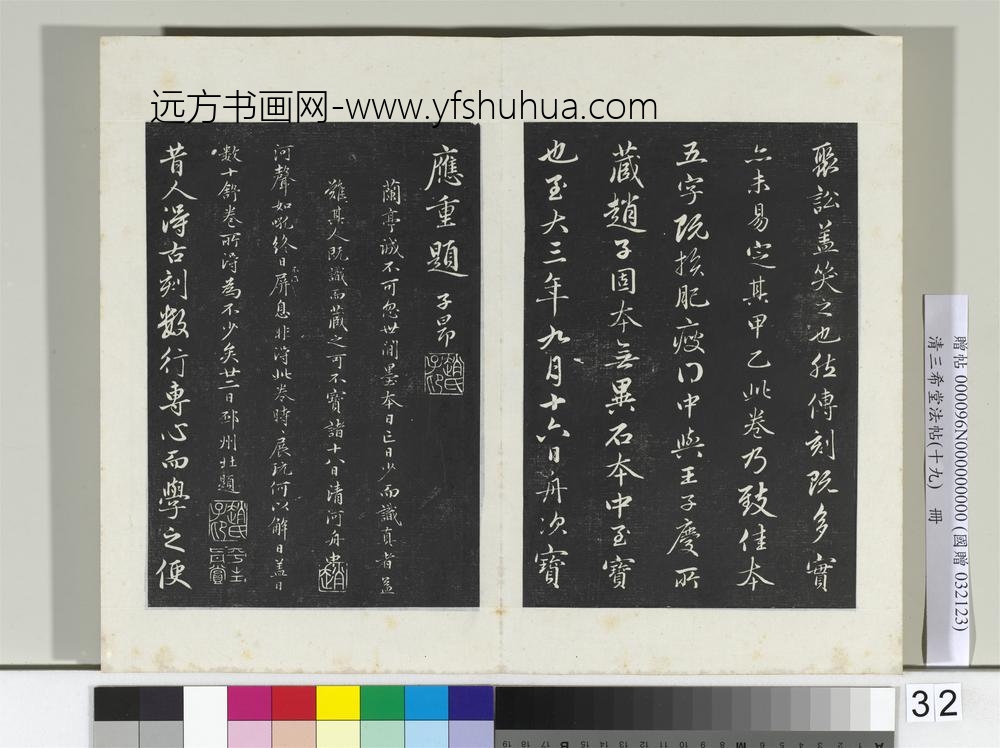 远方书画网-www.yfshuhua.com
聚訟蓋笑之也然傳刻既多實
亦未易定其甲乙此卷乃致佳本
五字既損肥瘦得中與王子慶所
藏趙子固本無異石本中至寶
也至大三年九月十六日舟次寶
應重題 子昂
蘭亭誠不可忽世間墨本日亡日少而識真者蓋
難其人既識而藏之可不寶諸十八日清河舟中
河聲如吼終日屏息非得此卷時時展玩何以解日蓋日
數十舒卷所得為不少矣廿二日邳州北題
昔人得古刻數行專心而學之便
贈帖 0000096N000000000 (國贈 032123)
清三希堂法帖(十九) 冊
32